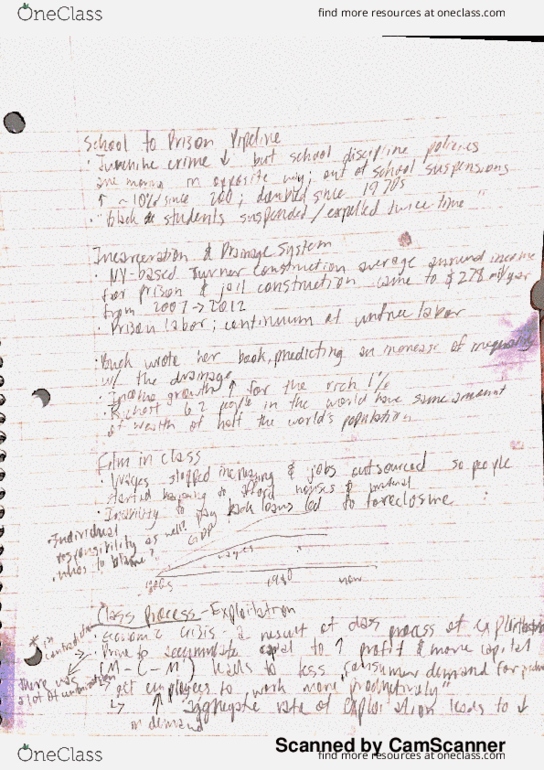 OneClass
find more resources at oneclass.com
School to Prison Pipeline
• Juvenile crime ↓ but school discipline policies
are moving in opposite way; out of school suspensions
↑ ~10% since 200; doubled since 1970s
• "black students suspended/expelled twice time"
Incarceration & Drainage System
• NY-based Turner Construction average annual income
for prison & jail construction came to $278 mil/year
from 2007 → 2012
• Prison labor; continuum of unfree labor
• wrote her book, predicting an increase of inequality
w/ the drainage
• Income growth ↑ for the rich 1%
• Richest 62 people in the world have same amount
of wealth of half the world's population
Film in class
• Wages stopped increasing & jobs outsourced so people
started to afford houses &
• Inability to pay back loans led to foreclosure
• Individual
responsibility as well?
whos to blame?
GDP
wages
1980
now
Class Process - Exploitation
• Economic Crisis - a result of class process of exploitation
• Drive to accumulate capital to ↑ profit & more capital
(M-C-M') leads to less "consumer demand for
→ get employees to work more "productively"
↳ ↑ aggregate rate of exploitation leads to ↓
in demand
* in contradiction
there was
a lot of
Scanned by CamScanner
OneClass
find more resources at oneclass.com